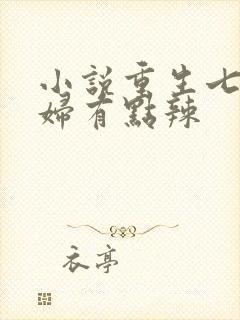 小説重生七
婦有點辣
衣亭